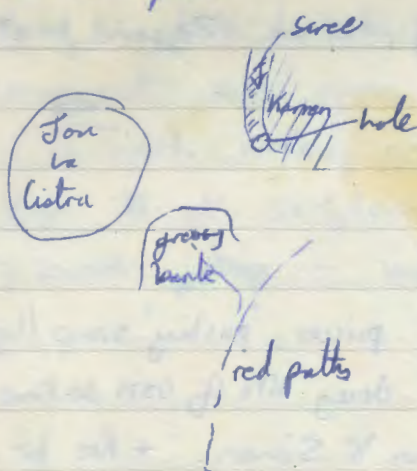 scree
hole
Jou
La
Cistra
grassy
red paths